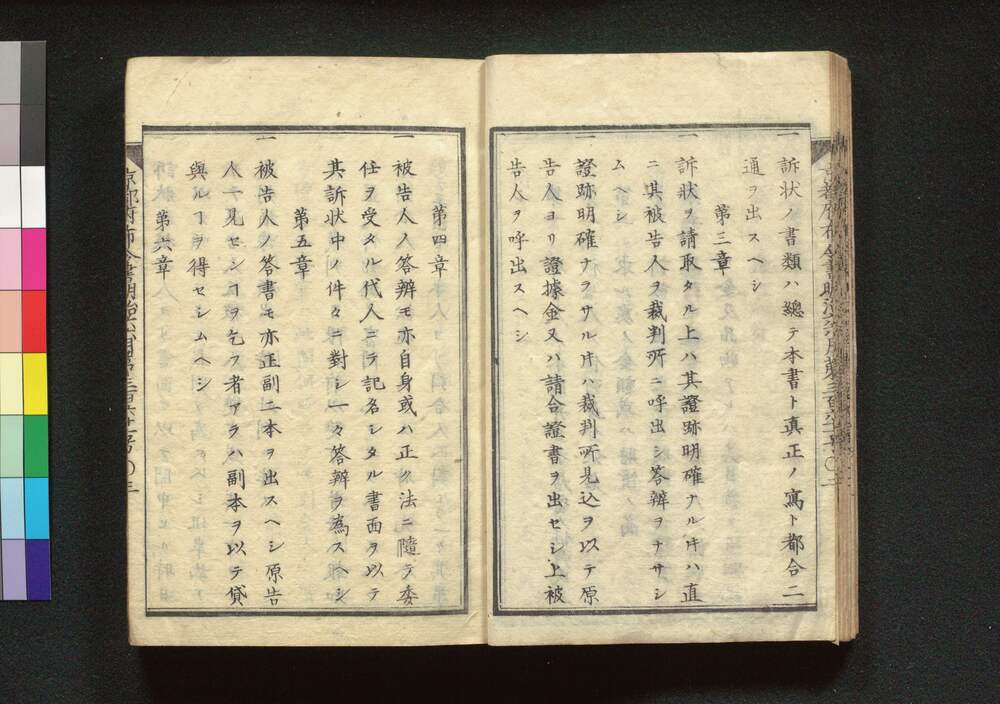 一訴状ノ書類ハ總テ本書ト真正ノ寫ト都合二
通ヲ出スヘシ
第三章
一訴状ヲ請取タル上ハ其證跡明確ナル片ハ直
ニ其被告人ヲ裁判所ニ呼出シ答辨ヲナサシ
ムヘシ
一證跡明確ナラサル片ハ裁判所見込ヲ以テ原
告人ヨリ證據金又ハ請合證書ヲ出セシ上被
告人ヲ呼出スヘシ
第四章
一被告人ノ答辨モ亦自身或ハ正ク法ニ隨テ委
任ヲ受タル代人ニテ記名シタル書面ヲ以テ
其訴状中ノ件々ニ對シ一々答辨ヲ為スヘシ
第五章
一被告人ノ答書モ亦正副二本ヲ出スヘシ原告
人一見センヿヲ乞フ者アラハ副本ヲ以テ貸
與ルヿヲ得セシムヘシ
第六章
京都府布令書明治六